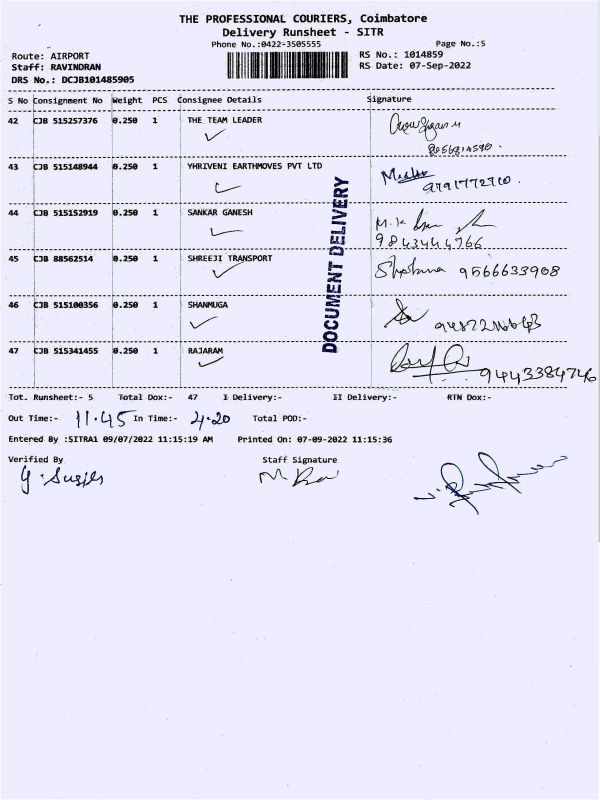 THE PROFESSIONAL COURIERS, Coimbatore
Delivery Runsheet - SITR
Phone No.:0422-3505555
Page No.:5
Route: AIRPORT
RS No.: 1014859
Staff: RAVINDRAN
RS Date: 07-Sep-2022
DRS No.: DCJB101485905
S No Consignment No Weight PCS Consignee Details Signature
42 CJB 515257376 0.250 1 THE TEAM LEADER
43 CJB 515148944 0.250 1 YHRIVENI EARTHMOVES PVT LTD
9791772710.
44 CJB 515152919 0.250 1 SANKAR GANESH
M.K
9843444766
45 CJB 88562514 0.250 1 SHREEJI TRANSPORT
9566633908
46 CJB 515100356 0.250 1 SHANMUGA
47 CJB 515341455 0.250 1 RAJARAM
9443384746
DOCUMENT DELIVERY
Tot. Runsheet:- 5 Total Dox:- 47 I Delivery:- II Delivery:- RTN Dox:-
Out Time:- 11.45 In Time:- 4.20 Total POD:-
Entered By :SITRA1 09/07/2022 11:15:19 AM Printed On: 07-09-2022 11:15:36
Verified By Staff Signature